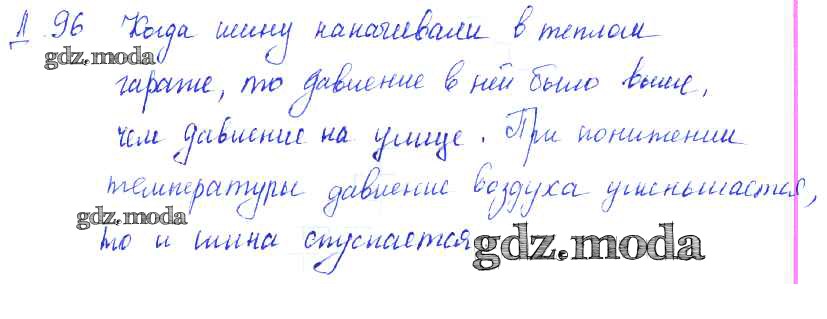 Д 96 Когда шину накачивали в теплом
gdz.moda
гараже, то давление в ней было выше,
чем давление на улице. При понижении
температуры давление воздуха уменьшается,
gdz.moda
то и шина спускается
gdz.moda